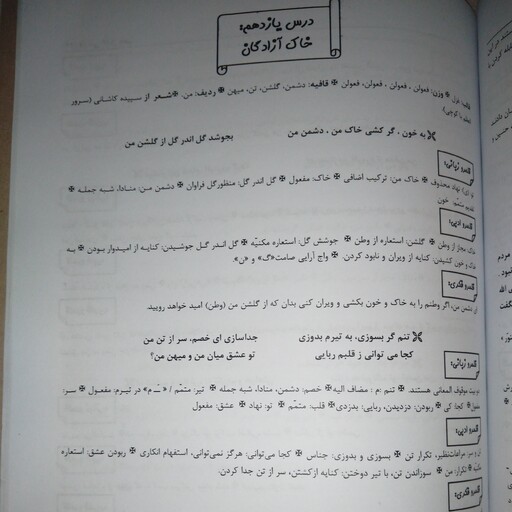 درس یازدهم:
خاک آزادگان
قالب: غزل ✠ وزن: فعولن ، فعولن ، فعولن، فعولن ✠ قافیه: دشمن، گلشن، تن، میهن ✠ ردیف: من. ✠شعر از سپیده کاشانی (سرور
به خون ، گر کشی خاک من ، دشمن من بجوشد گل اندر گل از گلشن من
قلمرو زبانی:
نهاد محذوف ✠ خاک من: ترکیب اضافی ✠ خاک: مفعول ✠ گل اندر گل: منظورگل فراوان ✠ دشمن من: منادا، شبه جمله ✠
متمّم: خون
قلمرو ادبی:
خاک مجاز از وطن ✠ گلشن: استعاره از وطن ✠ جوشش گل: استعاره مکنیّه ✠ گل اندر گل جوشیدن: کنایه از امیدوار بودن ✠ به
خاک و خون کشیدن: کنایه از ویران و نابود کردن. ✠ واج آرایی صامت«گ» و «ن».
قلمرو فکری:
ای دشمن من، اگر وطنم را به خاک و خون بکشی و ویران کنی بدان که از گلشن من (وطن) امید خواهد رویید.
تنم گر بسوزی، به تیرم بدوزی جداسازی ای خصم، سر از تن من
کجا می توانی ز قلبم ربایی تو عشق میان من و میهن من؟
قلمرو زبانی:
دو بیت موقوف المعانی هستند. ✠ تنم :م : مضاف الیه✠ خصم: دشمن، منادا، شبه جمله ✠ تیر: متمّم / « ـَ م» در تیرم: مفعول ✠ سر:
مفعول✠ کجا: کی ✠ ربودن: دزدیدن، ربایی: بدزدی✠ قلب: متمّم ✠ تو: نهاد ✠ عشق: مفعول
قلمرو ادبی:
تن و سر: مراعات‌نظیر، تکرار تن ✠ بسوزی و بدوزی: جناس ✠ کجا می‌توانی: هرگز نمی‌توانی، استفهام انکاری ✠ ربودن عشق: استعاره
مکنیّه ✠تکرار: من ✠ سوزاندن تن، با تیر دوختن: کنایه ازکشتن، سر از تن جدا کردن.
قلمرو فکری: